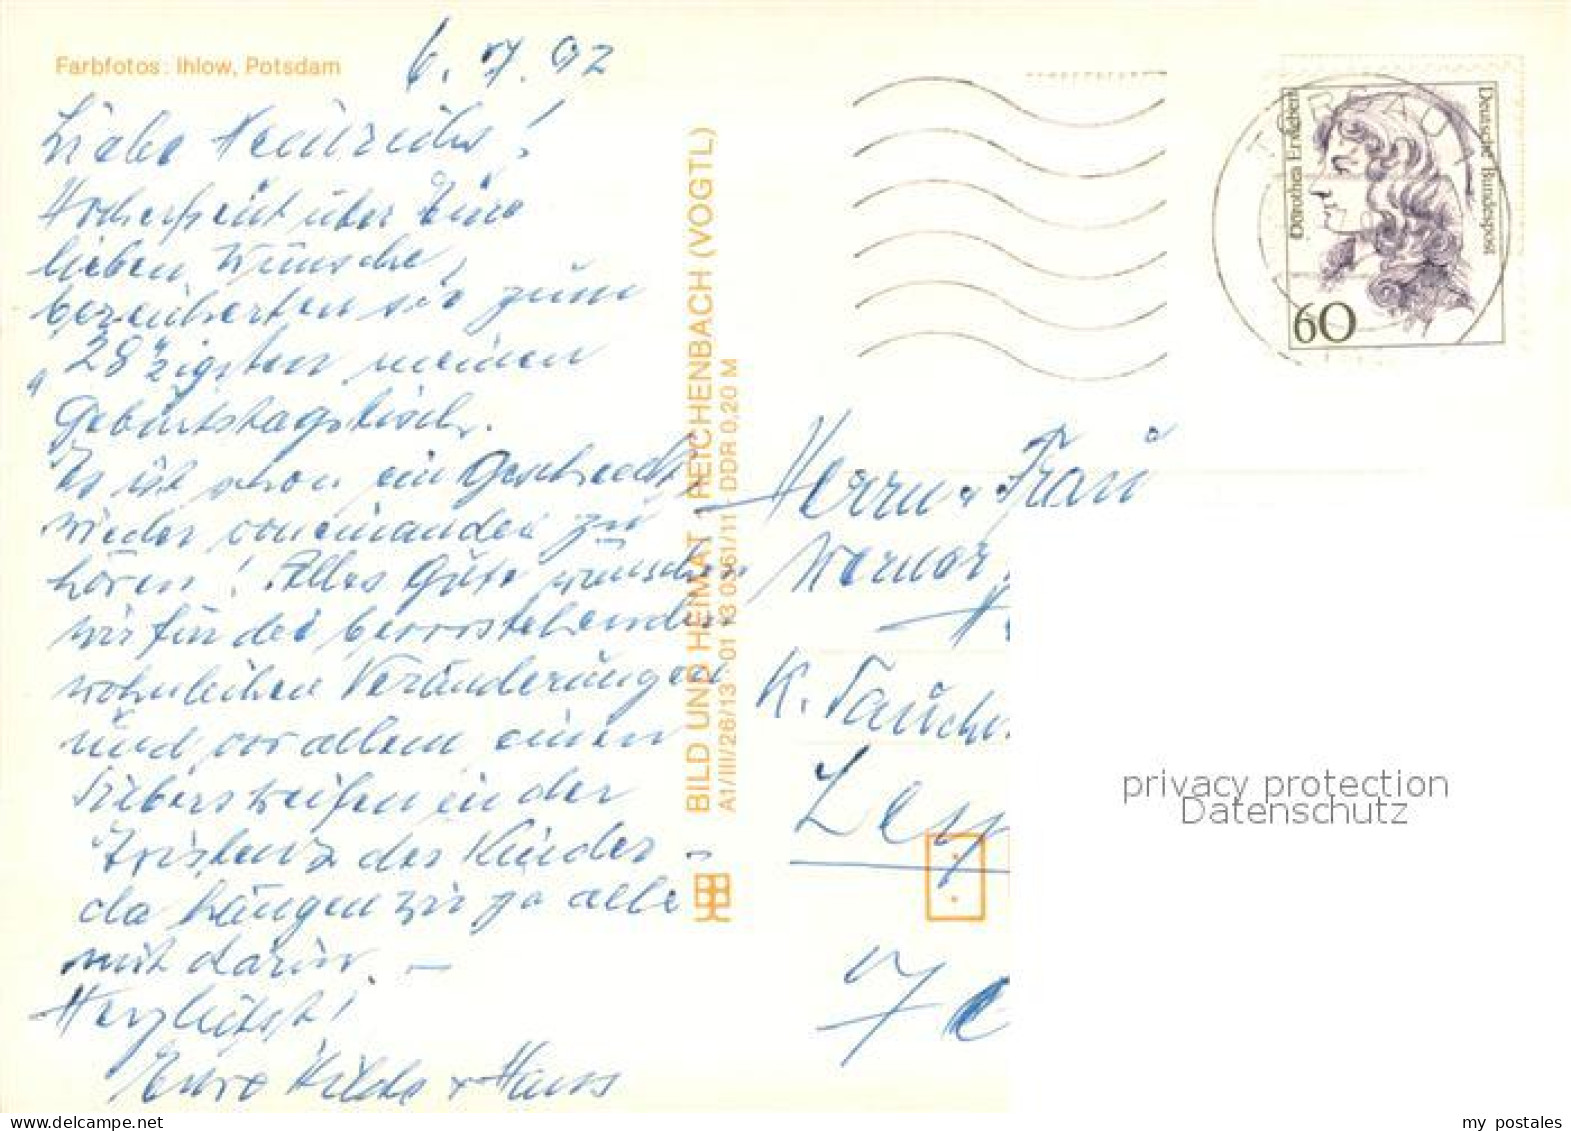 Farbfotos: Ihlow, Potsdam
6. 7. 92
Liebe Heinrichs!
Hocherfreut über Eure
lieben Wünsche,
bereicherten sie zum
"28zigsten" meinen
Geburtstagstisch.
Es ist schon ein Geschenk,
wieder voneinander zu
hören! Alles Gute wünschen
wir für die bevorstehenden
wohnlichen Veränderungen
und vor allem einen
in der
Existenz der Kinder –
da hängen wir ja alle
mit darin. –
Herzlichst!
Eure Hilde + Hans
BILD UND HEIMAT REICHENBACH (VOGTL)
A1/III/26/13 01 13 0361/11 DDR 0,20 M
TORGAU 1
Dorothea Erxleben
Deutsche Bundespost
60
Herrn u. Frau
Werner
H
K. Tauchn
Leip
70
privacy protection
Datenschutz
my postales